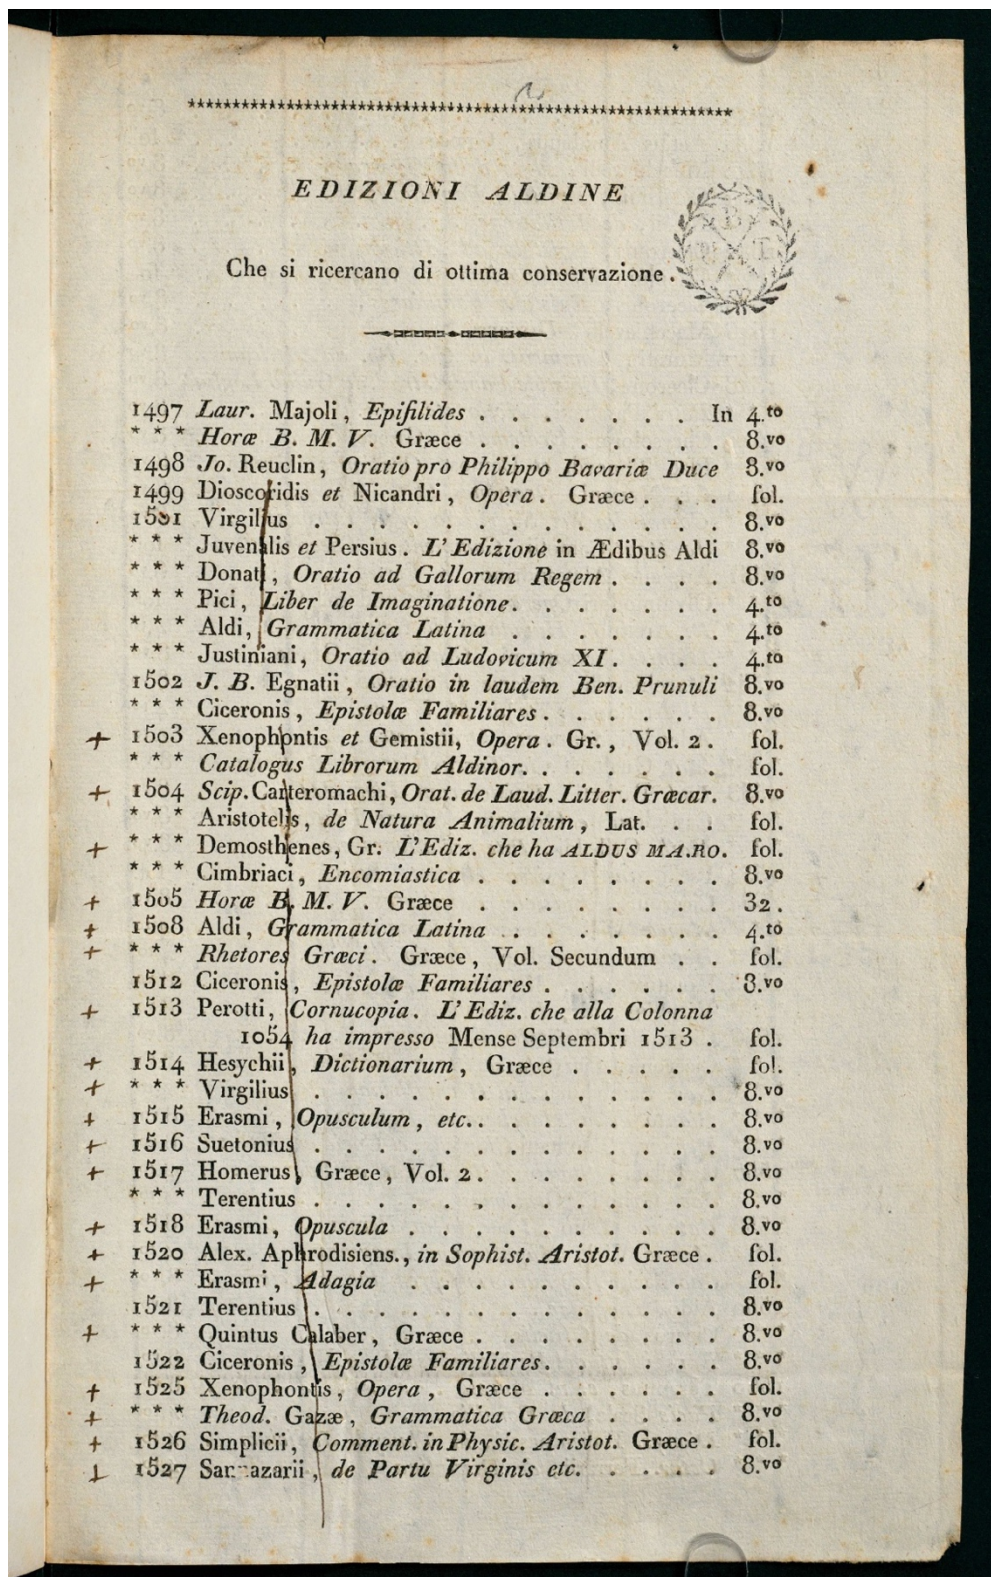 ************************************************************
EDIZIONI ALDINE
Che si ricercano di ottima conservazione.
B T
1497 Laur. Majoli, Epifilides . . . . . . . In 4.to
* * * Horæ B. M. V. Græce . . . . . . . . 8.vo
1498 Jo. Reuclin, Oratio pro Philippo Bavariæ Duce 8.vo
1499 Dioscoridis et Nicandri, Opera. Græce . . . fol.
1501 Virgilius . . . . . . . . . . . . . . 8.vo
* * * Juvenalis et Persius. L'Edizione in Ædibus Aldi 8.vo
* * * Donati, Oratio ad Gallorum Regem . . . . 8.vo
* * * Pici, Liber de Imaginatione. . . . . . . . 4.to
* * * Aldi, Grammatica Latina . . . . . . . 4.to
* * * Justiniani, Oratio ad Ludovicum XI. . . . . 4.to
1502 J. B. Egnatii, Oratio in laudem Ben. Prunuli 8.vo
* * * Ciceronis, Epistolæ Familiares . . . . . . 8.vo
+ 1503 Xenophontis et Gemistii, Opera. Gr., Vol. 2. fol.
* * * Catalogus Librorum Aldinor. . . . . . . fol.
+ 1504 Scip. Carteromachi, Orat. de Laud. Litter. Græcar. 8.vo
* * * Aristotelis, de Natura Animalium, Lat. . . fol.
+ * * * Demosthenes, Gr. L'Ediz. che ha ALDUS MA.RO. fol.
* * * Cimbriaci, Encomiastica . . . . . . . . 8.vo
+ 1505 Horæ B. M. V. Græce . . . . . . . . 32.
+ 1508 Aldi, Grammatica Latina . . . . . . . 4.to
+ * * * Rhetores Græci. Græce, Vol. Secundum . . fol.
1512 Ciceronis, Epistolæ Familiares . . . . . . 8.vo
+ 1513 Perotti, Cornucopia. L'Ediz. che alla Colonna
1054 ha impresso Mense Septembri 1513 . fol.
+ 1514 Hesychii, Dictionarium, Græce . . . . . fol.
+ * * * Virgilius . . . . . . . . . . . . . . 8.vo
+ 1515 Erasmi, Opusculum, etc. . . . . . . . . 8.vo
+ 1516 Suetonius . . . . . . . . . . . . . . 8.vo
+ 1517 Homerus, Græce, Vol. 2. . . . . . . . . 8.vo
* * * Terentius . . . . . . . . . . . . . . 8.vo
+ 1518 Erasmi, Opuscula . . . . . . . . . . . 8.vo
+ 1520 Alex. Aphrodisiens., in Sophist. Aristot. Græce. fol.
+ * * * Erasmi, Adagia . . . . . . . . . . . fol.
1521 Terentius . . . . . . . . . . . . . . 8.vo
+ * * * Quintus Calaber, Græce . . . . . . . . 8.vo
1522 Ciceronis, Epistolæ Familiares. . . . . . . 8.vo
+ 1525 Xenophontis, Opera, Græce . . . . . . fol.
+ * * * Theod. Gazæ, Grammatica Græca . . . . 8.vo
+ 1526 Simplicii, Comment. in Physic. Aristot. Græce. fol.
+ 1527 Sannazarii, de Partu Virginis etc. . . . . 8.vo